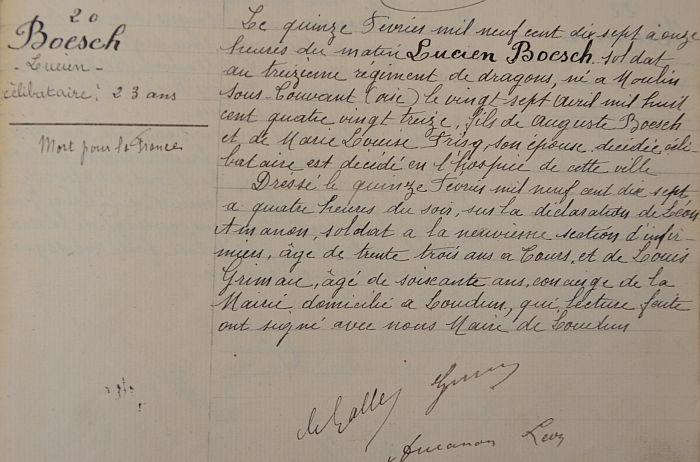 20
Boesch
- Lucien -
célibataire! 23 ans
Mort pour la France
Le quinze Fevrier mil neuf cent dix sept à onze
heures du matin Lucien Boesch, soldat
au treizième régiment de dragons, né à Moulin
sous Touvant (oise) le vingt sept avril mil huit
cent quatre vingt treize, fils de Auguste Boesch
et de Marie Louise Frisq, son épouse, décédée, céli-
bataire est décédé en l'hospice de cette ville
Dressé le quinze Fevrier mil neuf cent dix sept
a quatre heures du soir, sur la déclaration de Léon
Amanon, soldat a la neuvieme section d'infir-
miers, âge de trente trois ans a Tours, et de Louis
Grimau, âgé de soixante ans, concierge de la
Mairie, domicilié a Loudun, qui, lecture faite
ont signé avec nous Maire de Loudun
Amanon Léon